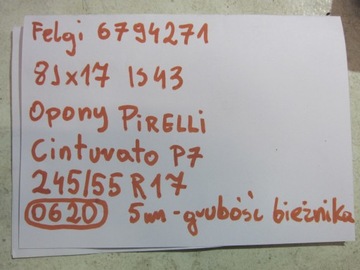 Felgi 6794271
8Jx17 IS43
Opony PiRELLi
Cinturato P7
245/55 R17
0620 5mm-grubość bieżnika